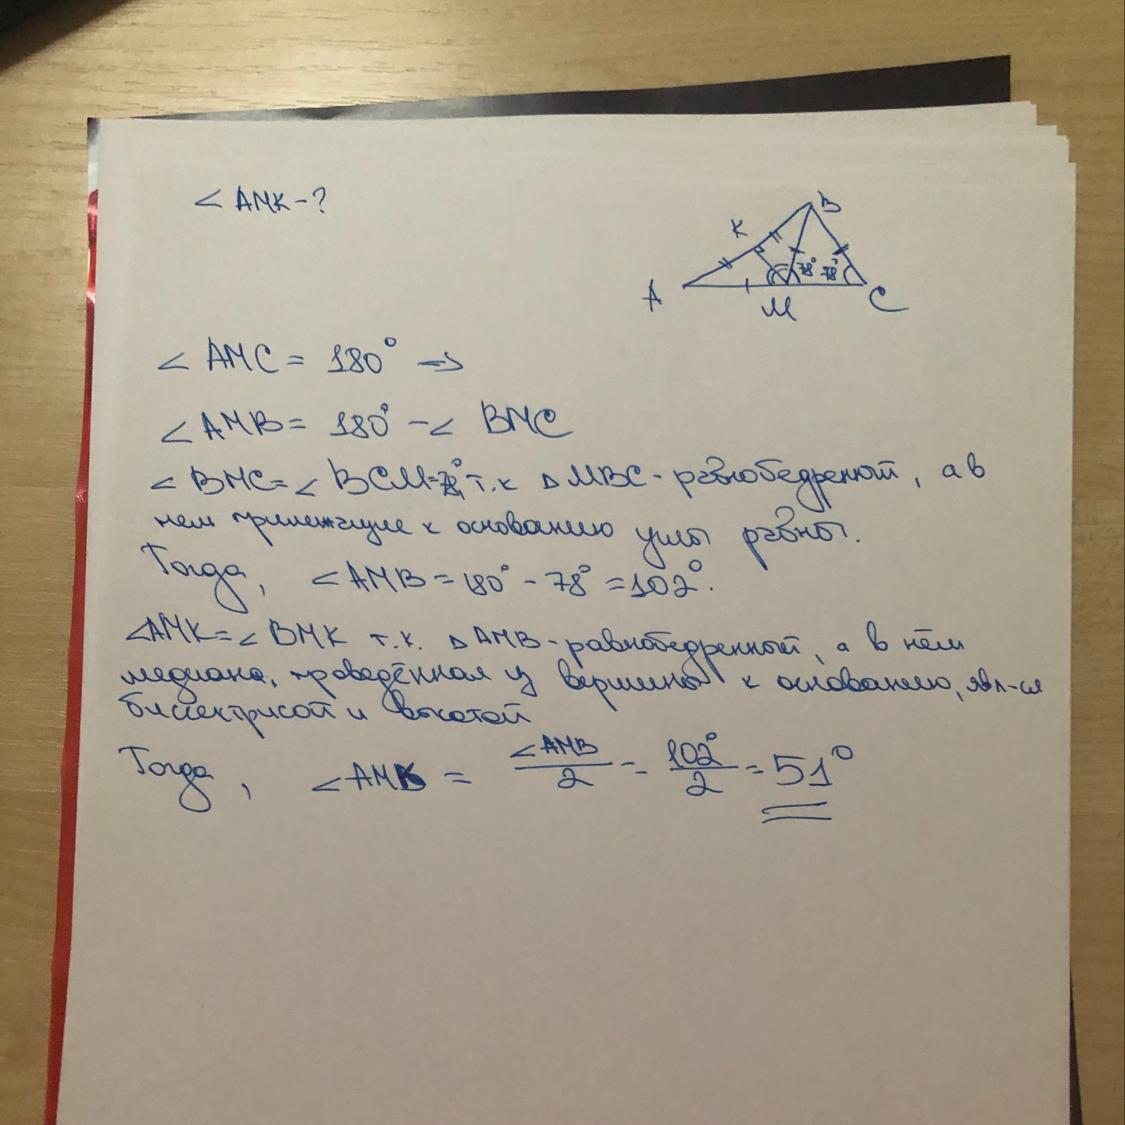 ∠ AMK - ?
K B
78° 78°
A M C
∠ AMC = 180° ⇒
∠ AMB = 180° - ∠ BMC
∠ BMC = ∠ BCM = т.к Δ MBC - равнобедренный, а в
нем прилежащие к основанию углы равны.
Тогда, ∠ AMB = 180° - 78° = 102°.
∠AMK = ∠ BMK т.к. Δ AMB - равнобедренный, а в нём
медиана, проведённая из вершины к основанию, явл-ся
биссектрисой и высотой
Тогда, ∠ AMK = ∠AMB / 2 = 102° / 2 = 51°